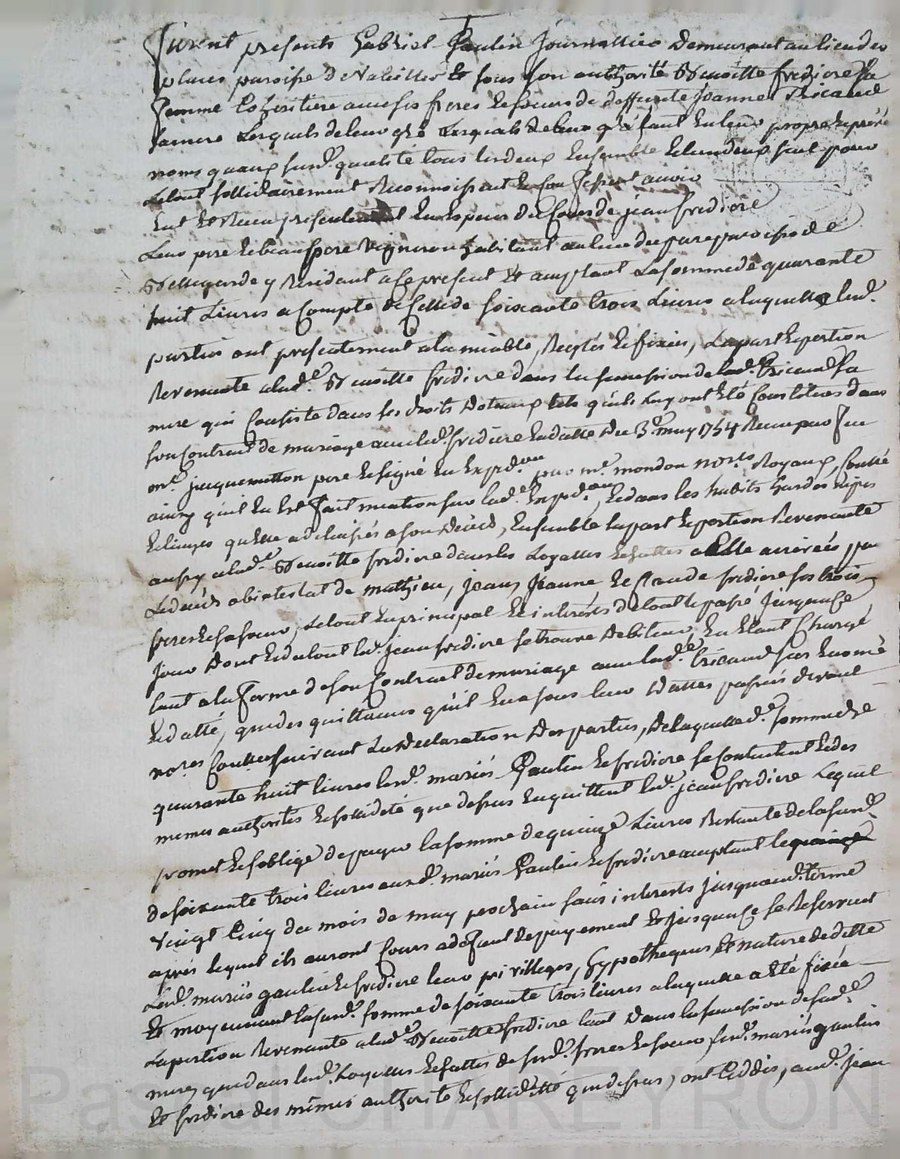 furent presents Gabriel Gaulin Journallier Demeurant au lieu des
paroisse de Valeilles & sous son authorité Benoitte frediere Sa
femme Coheritiere avec ses freres & soeurs de deffunte Jeanne Tricaud
Sa mere Lesquels de leur gré Lesquels de leur gré faut En leur propre & privé
noms quaux susd. qualité tous les deux Ensemble & lun deux seul pour
Le tout sollidairement Reconnoissent & Con fessent avoir
Eut & Recu presentement En Especes de Cours de jean fredierre
Leur pere & beaupere Vigneron habitant au lieu du paroisse de
Bellegarde y Residant a Ce present & acceptant La somme de quarante
huit Livres a Compte de Celle de soixante trois Livres a laquelle lesd.
parties ont presentement a la miable, Reiglés & fixés, La part & portion
Revenante a lad.e Benoitte fredierre dans la succession de lad.e Tricaud sa
mere qui Consiste dans ses droits Dotaux tels qu'ils Luy ont été Constitués dans
son Contrat de mariage avec led. fredierre En datte du 3.e may 1754 Recu par feu
m.e jacquemotton pere & signé En Exped.on par m.e mondon no.re Royaux, Comme
ainsy quil En Est fait mention sur lad.e Exped.on, & dans les habits hardes nipes
& linges quelle a delaissés a son Décès, Ensemble la part & portion Revenante
aussy a lad.e Benoitte fredierre dans les Loyattes Echuttes a Elle arrivées par
Le décès abintestat de mathieu, jean, jeanne & Claude fredierre ses trois
freres & sa soeur, Le tout En principal & interets de tout le passé jusqua Ce
jour Dont & du tout led. jean fredierre se trouve Debiteur, En Etant Chargé
tant a la forme de son Contrat de mariage avec lad.e Tricaud sus Enoncé
& datté, que des quittances qu'il En a sous leur Dattes passées devant
no.res suivant La Declaration Des parties, De laquelle d.e somme de
quarante huit livres lesd. mariés Gaulin & fredierre se Contentent & des
mêmes authorités & sollidité que dessus En quittent led. jean fredierre Lequel
promet & soblige de payer la somme de quinze Livres Restante de la susd.
de soixante trois livres aux d. mariés Gaulin & fredierre acceptant le quinze
vingt Cinq du mois de may prochain sans interets jusquaud. terme
apres lequel ils auront Cours a deffaut de payement & jusqua Ce se Reservent
Lesd. mariés gaulin & fredierre leur privilleges, hypotheques & nature de dette
Et moyennant la susd. somme de soixante trois livres a laquelle a été fixée
La portion Revenante a lad.e Benoitte fredierre tant Dans la succession de sad.e
mere que dans lesd. Loyattes Echuttes de sesd. freres & soeur lesd. mariés gaulin
Et fredierre des mêmes authorité & sollidité que dessus, ont Ceddés, aud. jean
Pascal CHAREYRON